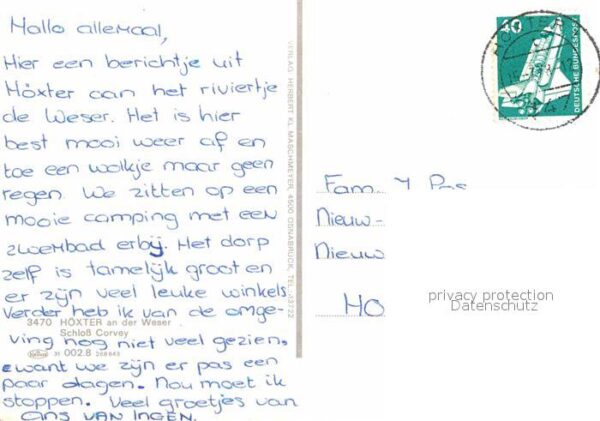 Hallo allemaal,
Hier een berichtje uit
Höxter aan het riviertje
de Weser. Het is hier
best mooi weer af en
toe een wolkje maar geen
regen. We zitten op een
mooie camping met een
zwembad erbij. Het dorp
zelf is tamelijk groot en
er zijn veel leuke winkels.
Verder heb ik van de omge-
3470 HÖXTER an der Weser
Schloß Corvey
ving nog niet veel gezien,
31 002.8
want we zijn er pas een
paar dagen. Nou moet ik
stoppen. Veel groetjes van
Ans van Ingen.
VERLAG HERBERT KL. MASCHMEYER, 4500 OSNABRÜCK, TEL.
40
DEUTSCHE BUNDESPOST
HÖXTER
Fam.
Nieuw-
Nieuw
HO
privacy protection
Datenschutz